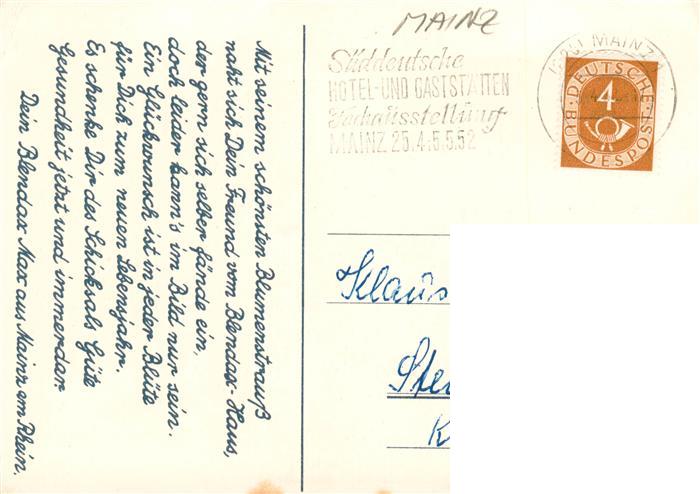 Mit seinem schönsten Blumenstrauß
naht sich Dein Freund vom Blendax-Haus,
der gern sich selber fände ein,
doch leider kann's im Bild nur sein.
Ein Glückwunsch ist in jeder Blüte
für Dich zum neuen Lebensjahr.
Es schenke Dir des Schicksals Güte
Gesundheit jetzt und immerdar
Dein Blendax Max aus Mainz am Rhein.
MAINZ
Süddeutsche
HOTEL-UND GASTSTÄTTEN
Fachausstellung
MAINZ 25.4.-5.5.52
MAINZ
DEUTSCHE
BUNDESPOST
4
Klaus